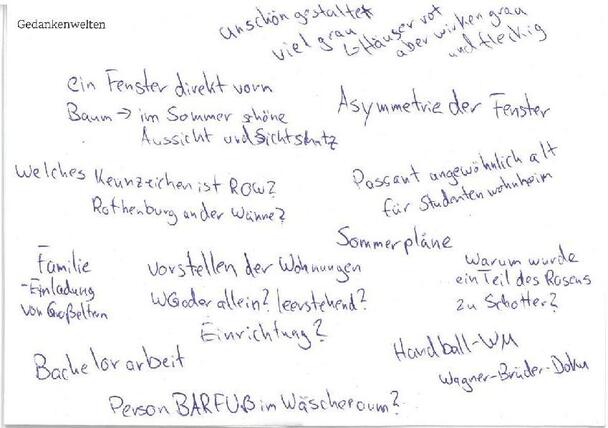 Gedankenwelten
unschön gestaltet
viel grau
↳ Häuser rot
aber wirken grau
und fleckig
ein Fenster direkt vorn
Baum → im Sommer schöne
Aussicht und Sichtschutz
Asymmetrie der Fenster
Welches Kennzeichen ist ROW?
Rothenburg an der Wümme?
Passant angewöhnlich alt
für Studentenwohnheim
Sommerpläne
Familie
-Einladung
von Großeltern
vorstellen der Wohnungen
WG oder allein? leerstehend?
Einrichtung?
Warum wurde
ein Teil des Rasens
zu Schotter?
Bachelorarbeit
Handball-WM
Wagner-Brüder-Doku
Person BARFUß im Wäscheraum?